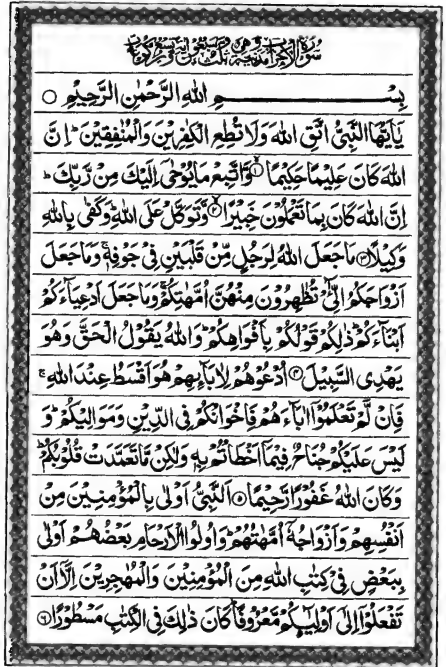 سُوْرَةُ الْاَحْزَابِ مَدَنِيَّةٌ وَّهِيَ ثَلٰثٌ وَّسَبْعُوْنَ اٰيَةً وَّتِسْعُ رُكُوْعَاتٍ
بِسْمِ اللهِ الرَّحْمٰنِ الرَّحِيْمِ ○
يٰۤاَيُّهَا النَّبِيُّ اتَّقِ اللهَ وَلَا تُطِعِ الْكٰفِرِيْنَ وَالْمُنٰفِقِيْنَ ؕ اِنَّ
اللهَ كَانَ عَلِيْمًا حَكِيْمًا ۝۱ وَّاتَّبِعْ مَا يُوْحٰۤى اِلَيْكَ مِنْ رَّبِّكَ ؕ
اِنَّ اللهَ كَانَ بِمَا تَعْمَلُوْنَ خَبِيْرًا ۝۲ وَّتَوَكَّلْ عَلَى اللهِ ؕ وَكَفٰى بِاللهِ
وَكِيْلًا ۝۳ مَا جَعَلَ اللهُ لِرَجُلٍ مِّنْ قَلْبَيْنِ فِيْ جَوْفِهٖ ۚ وَمَا جَعَلَ
اَزْوَاجَكُمُ الّٰٓـِٔيْ تُظٰهِرُوْنَ مِنْهُنَّ اُمَّهٰتِكُمْ ۚ وَمَا جَعَلَ اَدْعِيَآءَكُمْ
اَبْنَآءَكُمْ ؕ ذٰلِكُمْ قَوْلُكُمْ بِاَفْوَاهِكُمْ ؕ وَاللهُ يَقُوْلُ الْحَقَّ وَهُوَ
يَهْدِى السَّبِيْلَ ۝۴ اُدْعُوْهُمْ لِاٰبَآئِهِمْ هُوَ اَقْسَطُ عِنْدَ اللهِ ۚ
فَاِنْ لَّمْ تَعْلَمُوْۤا اٰبَآءَهُمْ فَاِخْوَانُكُمْ فِى الدِّيْنِ وَمَوَالِيْكُمْ ؕ وَ
لَيْسَ عَلَيْكُمْ جُنَاحٌ فِيْمَاۤ اَخْطَاْتُمْ بِهٖ وَلٰكِنْ مَّا تَعَمَّدَتْ قُلُوْبُكُمْ ؕ
وَكَانَ اللهُ غَفُوْرًا رَّحِيْمًا ۝۵ اَلنَّبِيُّ اَوْلٰى بِالْمُؤْمِنِيْنَ مِنْ
اَنْفُسِهِمْ وَاَزْوَاجُهٗۤ اُمَّهٰتُهُمْ ؕ وَاُولُوا الْاَرْحَامِ بَعْضُهُمْ اَوْلٰى
بِبَعْضٍ فِيْ كِتٰبِ اللهِ مِنَ الْمُؤْمِنِيْنَ وَالْمُهٰجِرِيْنَ اِلَّاۤ اَنْ
تَفْعَلُوْۤا اِلٰۤى اَوْلِيٰٓئِكُمْ مَّعْرُوْفًا ؕ كَانَ ذٰلِكَ فِى الْكِتٰبِ مَسْطُوْرًا ۝۶